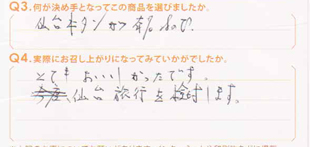 Q3.何が決め手となってこの商品を選びましたか。
仙台牛タンが有名なので
Q4.実際にお召し上がりになってみていかがでしたか。
とても おいしかったです。
仙台旅行を検討します。